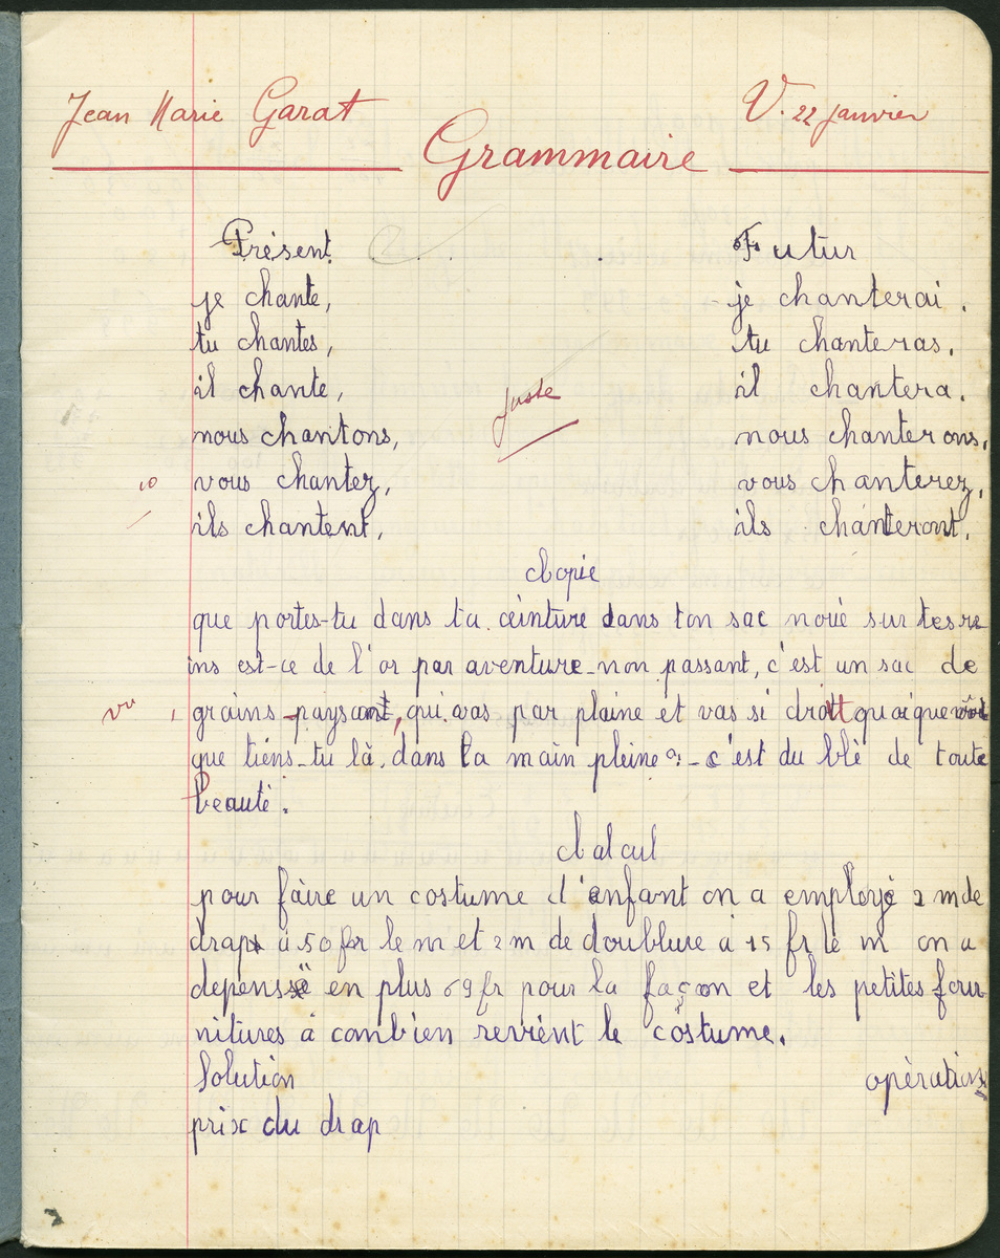 Jean Marie Garat V. 22 janvier
Grammaire
Présent Futur
je chante, je chanterai.
tu chantes, tu chanteras.
il chante, il chantera.
juste
nous chantons, nous chanterons.
10 vous chantez, vous chanterez,
ils chantent, ils chanteront.
Copie
que portes-tu dans ta ceinture dans ton sac noué sur tes re
ins est-ce de l'or par aventure_non passant, c'est un sac de
vu grains_paysant, qui vas par plaine et vas si droit quoique
que tiens-tu là, dans la main pleine ?_c'est du blé de toute
beauté.
Calcul
pour faire un costume d'enfant on a employé 2 m de
drap à 50 fr le m et 2 m de doublure à 15 fr le m on a
depensé en plus 69 fr pour la façon et les petites four
nitures à combien revient le costume.
Solution opérations
prix du drap